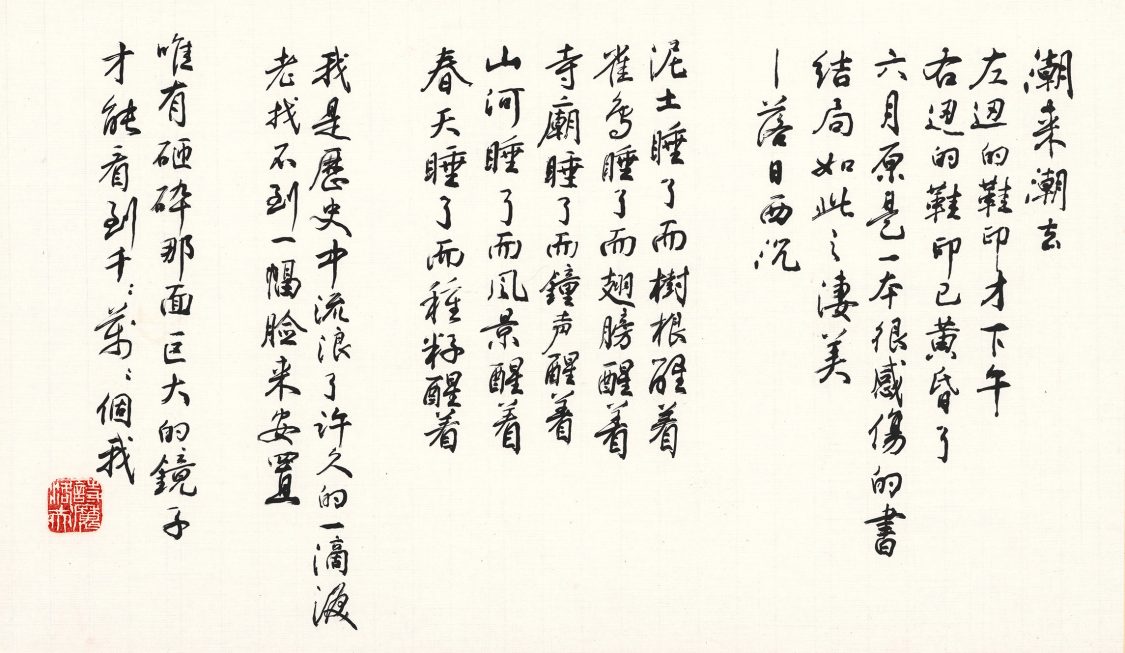 潮来潮去
左邊的鞋印才下午
右邊的鞋印已黄昏了
六月原是一本很感傷的書
结局如此之淒美
—落日西沉
泥土睡了而樹根醒着
雀鸟睡了而翅膀醒着
寺廟睡了而鐘声醒着
山河睡了而風景醒着
春天睡了而種籽醒着
我是歷史中流浪了许久的一滴淚
老找不到一幅脸来安置
唯有砸碎那面巨大的鏡子
才能看到千:萬:個我
詩魔洛夫